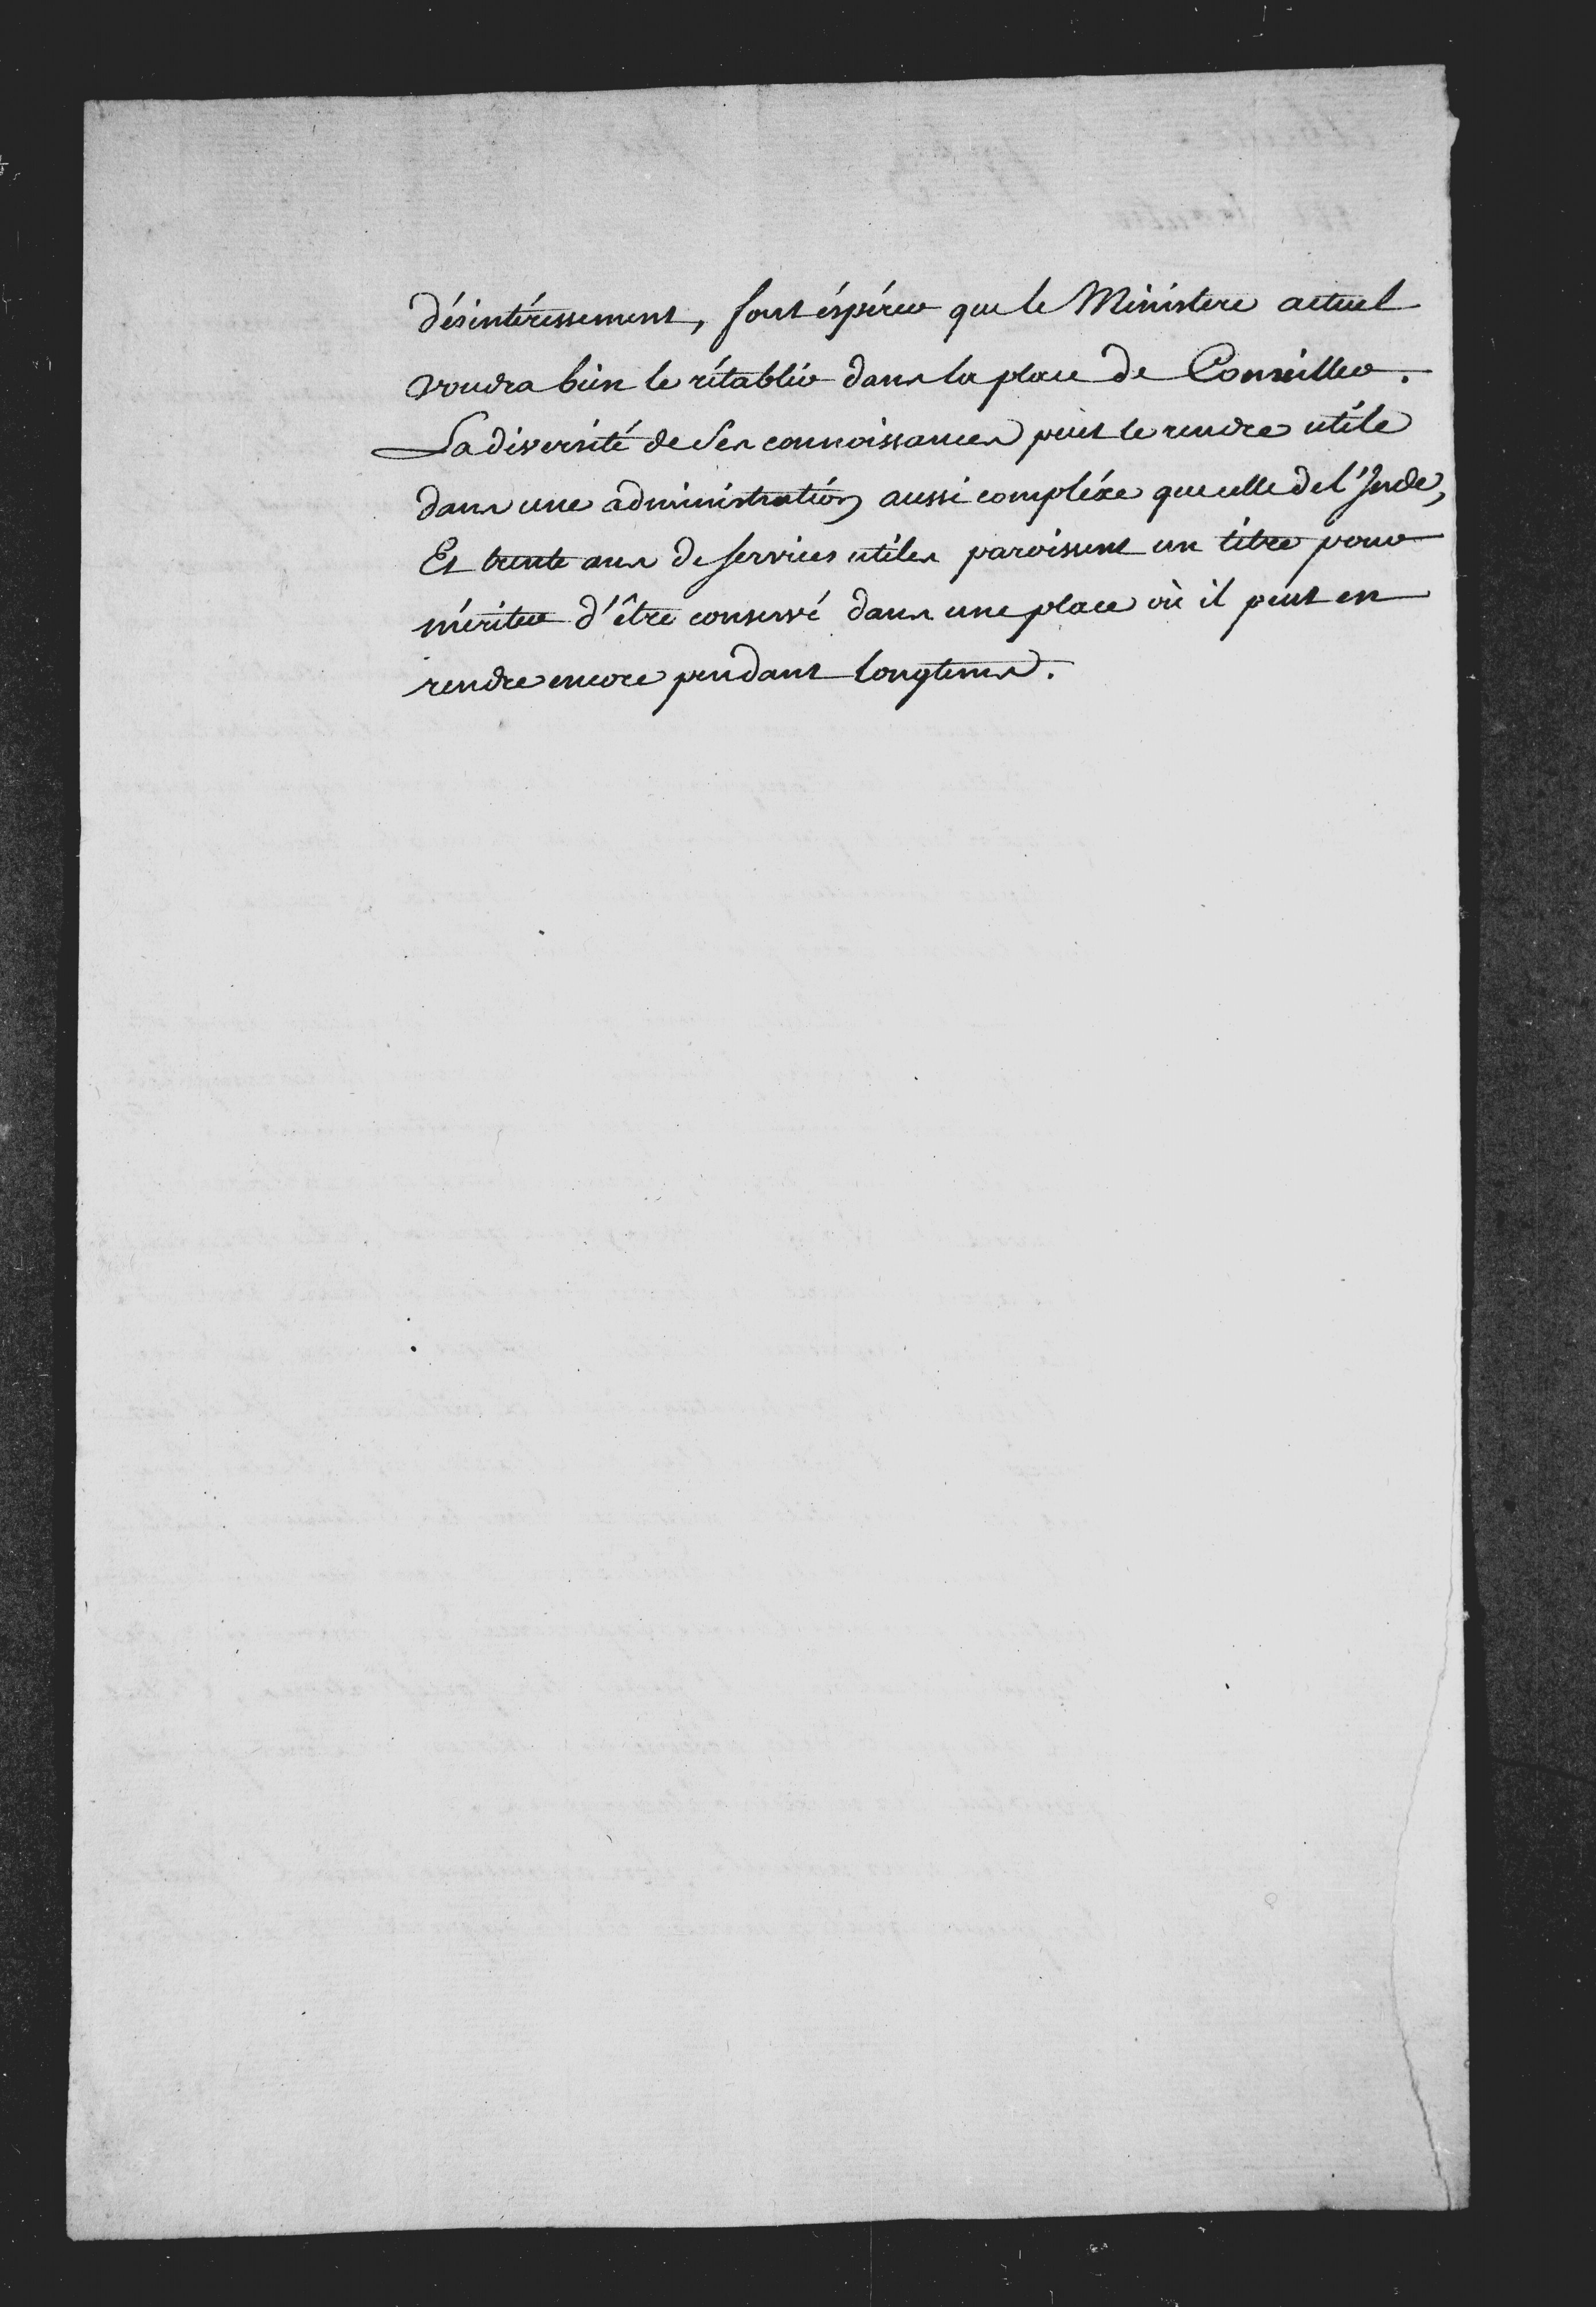 désintéressement, font éspérer que le Ministere actuel
voudra bien le rétablir dans la place de Conseiller.
La diversité de Ses connoissances peut le rendre utile
dans une administration aussi compléxe que celle de l'Inde,
Et trente ans de services utiles paroissent un titre pour
mériter d'être conservé dans une place où il peut en
rendre encore pendant longtems.